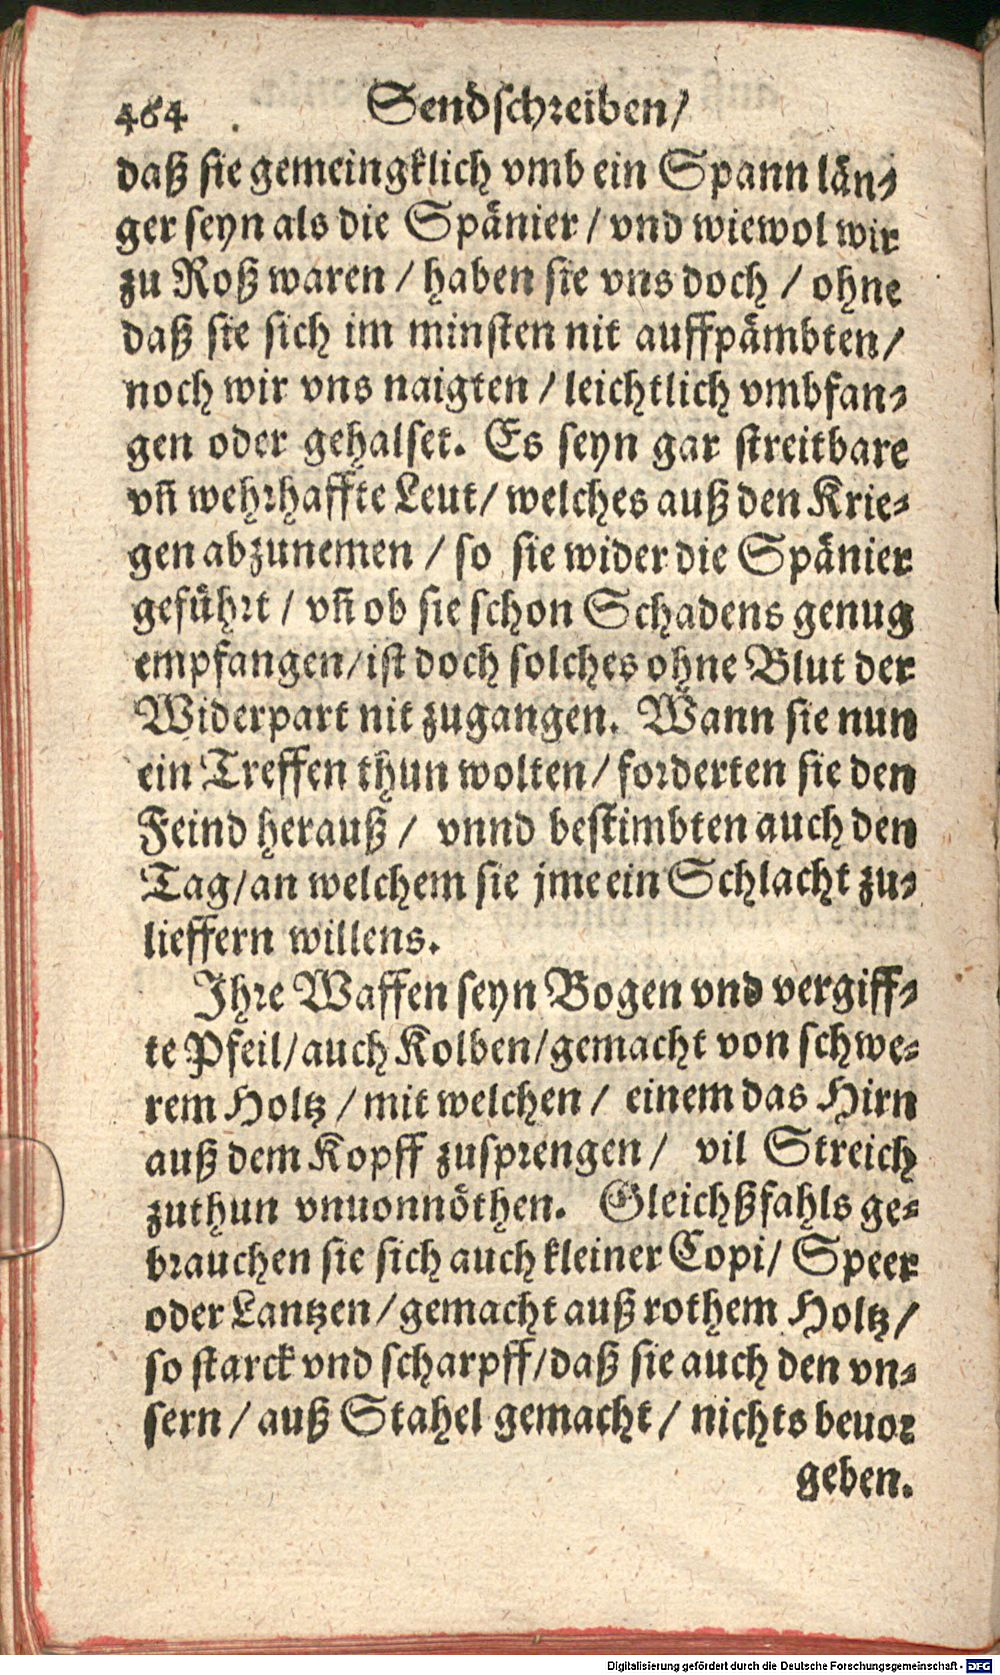 464 Sendschreiben/
daß sie gemeingklich vmb ein Spann län⸗
ger seyn als die Spänier / vnd wiewol wir
zu Roß waren / haben sie vns doch / ohne
daß sie sich im minsten nit auffpämbten/
noch wir vns naigten / leichtlich vmbfan⸗
gen oder gehalset. Es seyn gar streitbare
vñ wehrhaffte Leut/ welches auß den Krie⸗
gen abzunemen / so sie wider die Spänier
geführt / vñ ob sie schon Schadens genug
empfangen/ist doch solches ohne Blut der
Widerpart nit zugangen. Wann sie nun
ein Treffen thun wolten/ forderten sie den
Feind herauß / vnnd bestimbten auch den
Tag/an welchem sie jme ein Schlacht zu⸗
lieffern willens.
Ihre Waffen seyn Bogen vnd vergiff⸗
te Pfeil/auch Kolben/gemacht von schwe⸗
rem Holtz / mit welchen / einem das Hirn
auß dem Kopff zusprengen / vil Streich
zuthun vnuonnöthen. Gleichßfahls ge⸗
brauchen sie sich auch kleiner Copi/ Speer
oder Lantzen/gemacht auß rothem Holtz/
so starck vnd scharpff/daß sie auch den vn⸗
sern / auß Stahel gemacht / nichts beuor
geben.
Digitalisierung gefördert durch die Deutsche Forschungsgemeinschaft - DFG